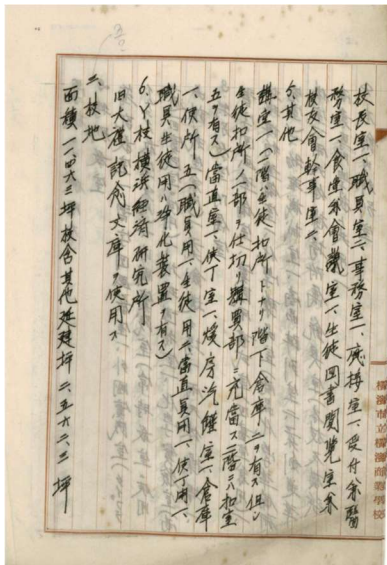 校長室一、職員室二、事務室一、應接室一、受付兼醫
務室一、食堂兼會議室一、生徒図書閲覧室兼
校友會幹事室一、
5、其他
講堂一(二階ハ生徒扣所トナリ階下倉庫二ヲ有ス但シ
生徒扣所ノ一部ヲ仕切リ購買部ニ充當ス二階ニハ扣室
五ヲ有ス)當直室一、使丁室一、煖房汽罐室一、倉庫
一、便所五(職員用一、生徒用二、當直員用一、使丁用一、
職員生徒用ハ浄化装置ヲ有ス)
6、Y校、横浜経済研究所
旧大震記念文庫ヲ使用ス
二、校地
面積一一四六三坪校舎其他延建坪二、五六二、三坪
横濱市立横濱商業學校